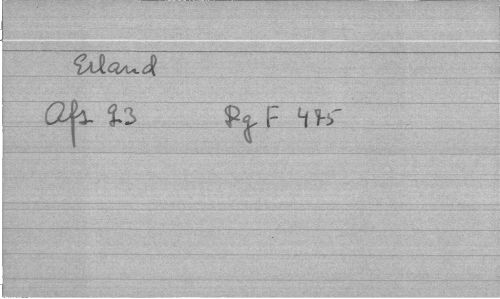 Erland
Afs 23 Rg F 475